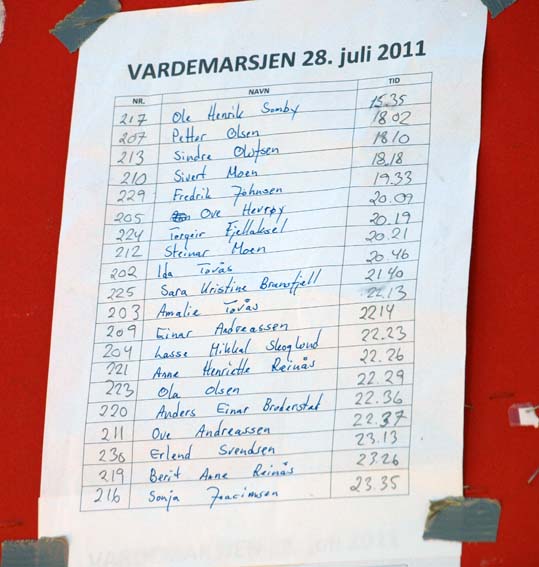 VARDEMARSJEN 28. juli 2011
NR. NAVN TID
217 Ole Henrik Somby 15.35
207 Petter Olsen 18.02
213 Sindre Olufsen 18.10
210 Sivert Moen 18.18
229 Fredrik Johnsen 19.33
205 Ove Hevrøy 20.09
224 Torgeir Fjellaksel 20.19
212 Steinar Moen 20.21
202 Ida Tovås 20.46
225 Sara Kristine Brannfjell 21.40
203 Amalie Tovås 22.13
209 Einar Andreassen 22.14
204 Lasse Mikkal Skoglund 22.23
221 Anne Henriette Reinås 22.26
223 Ola Olsen 22.29
220 Anders Einar Broderstad 22.36
211 Ove Andreassen 22.37
230 Erlend Svendsen 23.13
219 Berit Anne Reinås 23.26
216 Sonja 23.35